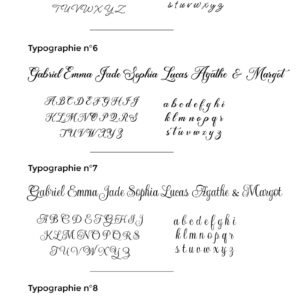 TUVWXYZ
stuvwxyz
Typographie n°6
Gabriel Emma Jade Sophia Lucas Agathe & Margot
ABCDEFGHIJ
KLMNOPQRS
TUVWXYZ
abcdefghi
klmnopqr
stuvwxyz
Typographie n°7
Gabriel Emma Jade Sophia Lucas Agathe & Margot
ABCDEFGHIJ
KLMNOPQRS
TUVWXYZ
abcdefghi
klmnopqr
stuvwxyz
Typographie n°8